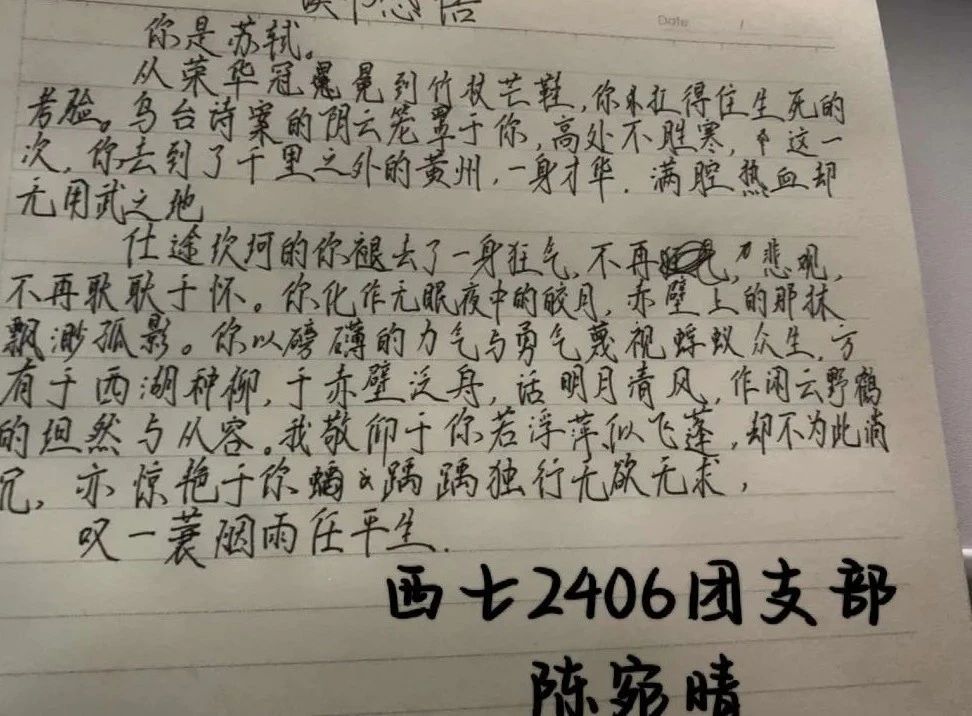 感悟
Date
你是苏轼。
从荣华冠冕到竹杖芒鞋,你扛得住生死的
考验。乌台诗案的阴云笼罩于你,高处不胜寒,这一
次,你去到了千里之外的黄州,一身才华,满腔热血却
无用武之地
仕途坎坷的你褪去了一身狂气,不再悲观,
不再耿耿于怀。你化作无眠夜中的皎月,赤壁上的那抹
飘渺孤影。你以磅礴的力气与勇气蔑视蜉蚁众生,方
有于西湖种柳,于赤壁泛舟,话明月清风,作闲云野鹤
的坦然与从容。我敬仰于你若浮萍似飞蓬,却不为此消
沉,亦惊艳于你踽踽独行无欲无求,
叹一蓑烟雨任平生.
西七2406团支部
陈宛晴